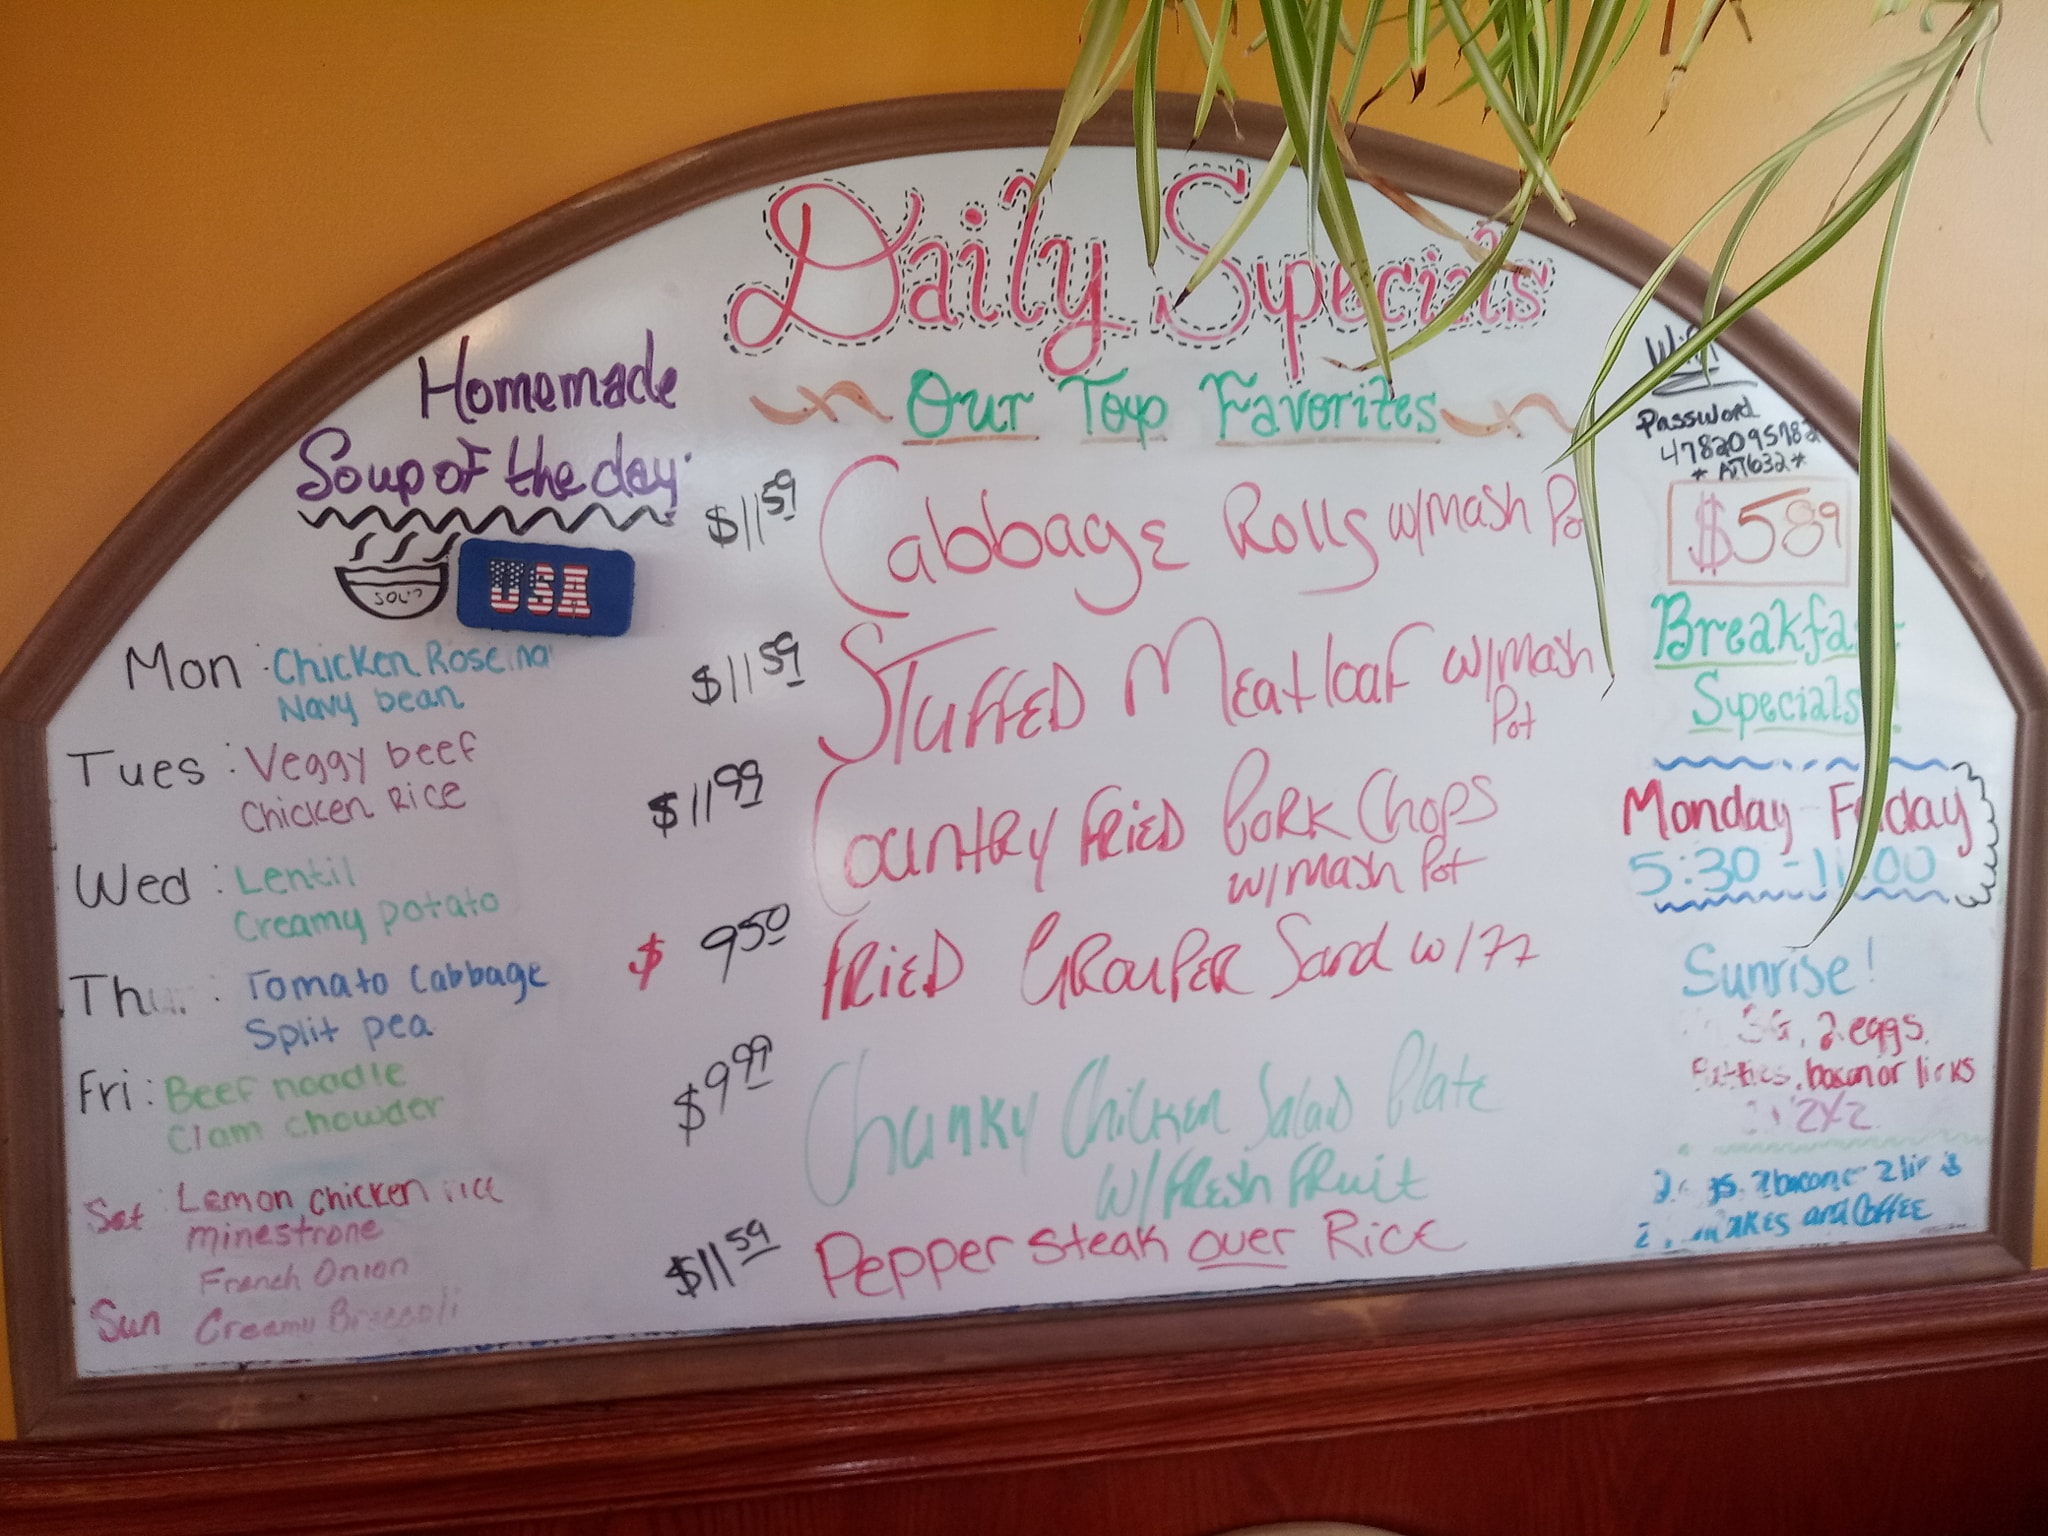 Daily Specials
Our Top Favorites
Homemade
Soup of the day:
SOUP
USA
Mon : Chicken Roseina
Navy bean
Tues : Veggy beef
Chicken Rice
Wed : Lentil
Creamy potato
Thur. : Tomato Cabbage
Split pea
Fri : Beef noodle
Clam chowder
Sat : Lemon chicken rice
minestrone
French Onion
Sun Creamy Broccoli
$11 59 Cabbage Rolls w/mash Pot
$11 59 Stuffed Meatloaf w/mash
Pot
$11 99 Country Fried Pork Chops
w/mash Pot
$ 9 50 Fried Grouper Sand w/ FF
$9 99 Chunky Chicken Salad Plate
w/ Fresh Fruit
$11 59 Pepper steak over Rice
Wifi
Password
4782095782
* ATT632 *
$5 89
Breakfast
Specials!
Monday - Friday
5:30 - 11:00
Sunrise!
2 eggs.
Patties, bacon or links
2x2
2 bacon or 2 links
and Coffee